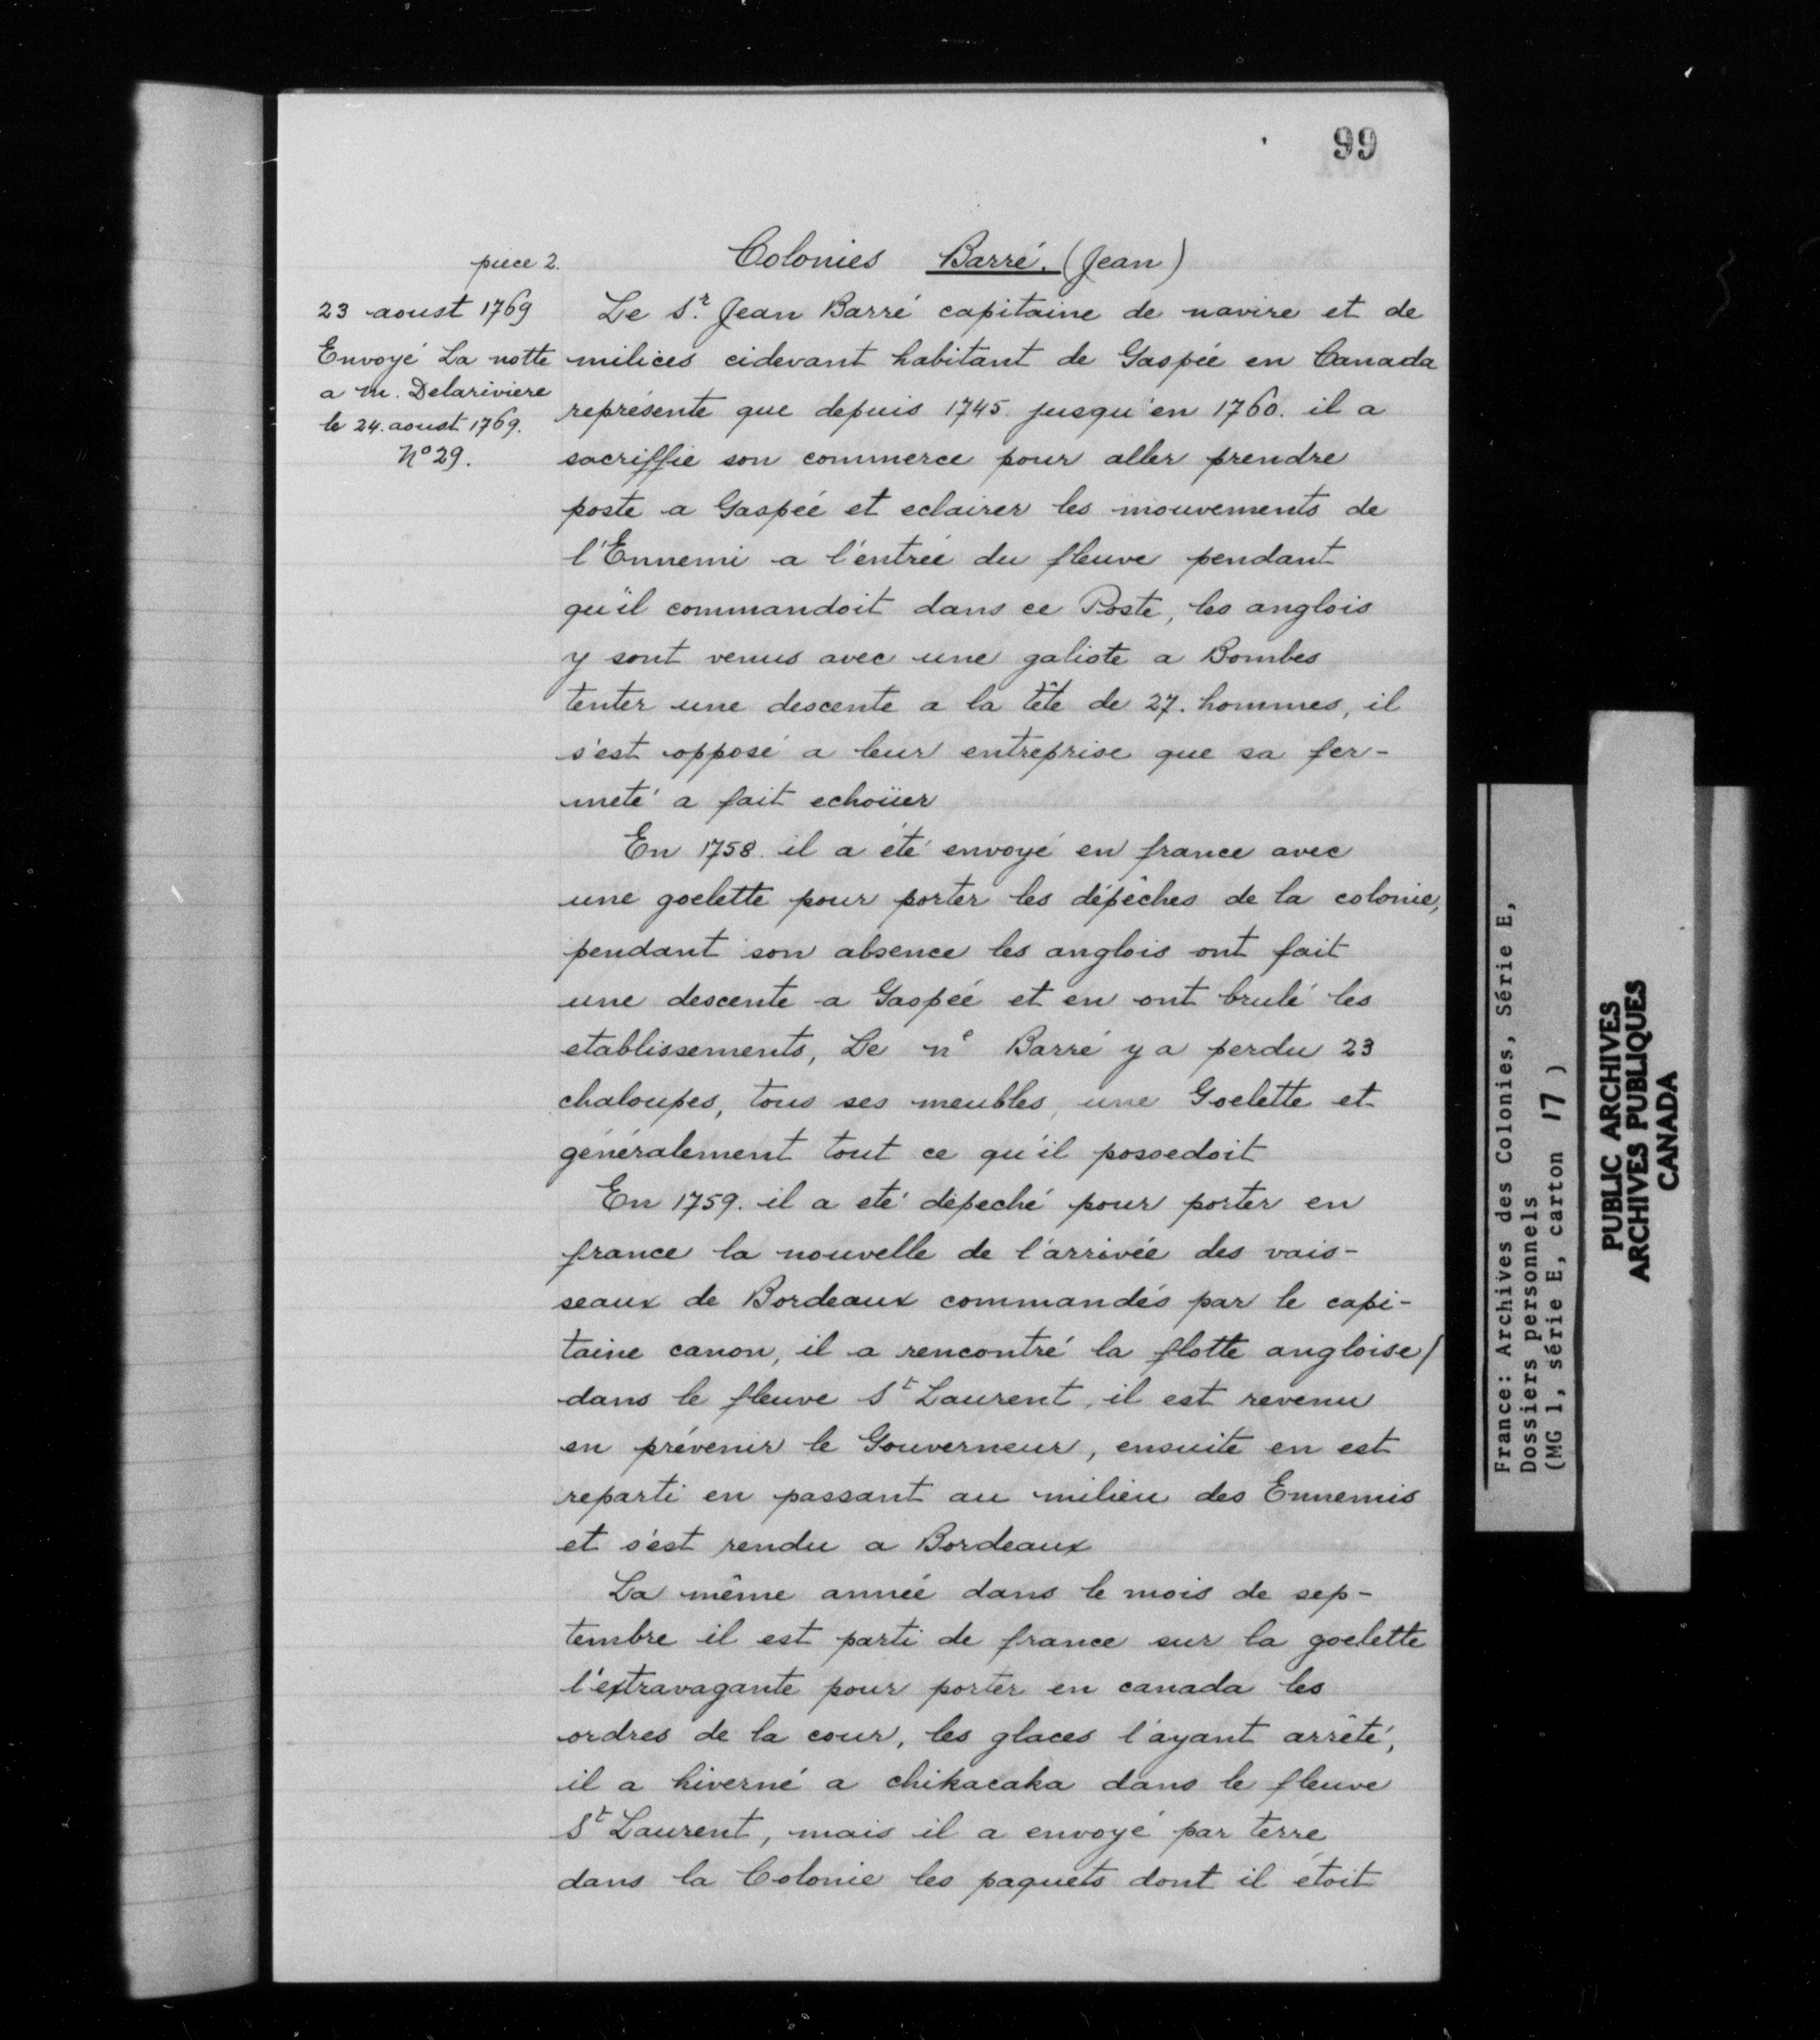 99
Colonies Barré. (Jean)
piece 2.
23 aoust 1769
Envoyé La notte
a M. Delariviere
le 24. aoust 1769.
N° 29.
Le Sr. Jean Barré capitaine de navire et de
milices cidevant habitant de Gaspée en Canada
représente que depuis 1745 jusqu'en 1760. il a
sacriffie son commerce pour aller prendre
poste a Gaspée et eclairer les mouvements de
l'Ennemi a l'entrée du fleuve pendant
qu'il commandoit dans ce Poste, les anglois
y sont venus avec une galiote a Bombes
tenter une descente a la tête de 27. hommes, il
s'est opposé a leur entreprise que sa fer-
meté a fait echoüer
En 1758. il a été envoyé en france avec
une goelette pour porter les dépêches de la colonie,
pendant son absence les anglois ont fait
une descente a Gaspée et en ont brulé les
etablissements, Le ne Barré y a perdu 23
chaloupes, tous ses meubles, une Goelette et
généralement tout ce qu'il possedoit
En 1759. il a eté dépeché pour porter en
france la nouvelle de l'arrivée des vais-
seaux de Bordeaux commandés par le capi-
taine canon, il a rencontré la flotte angloise
dans le fleuve St Laurent, il est revenu
en prévenir le Gouverneur, ensuite en est
reparti en passant au milieu des Ennemis
et s'est rendu a Bordeaux
La même année dans le mois de sep-
tembre il est parti de france sur la goelette
l'extravagante pour porter en canada les
ordres de la cour, les glaces l'ayant arrêté,
il a hiverné a chikacaka dans le fleuve
St Laurent, mais il a envoyé par terre
dans la Colonie les paquets dont il étoit
France: Archives des Colonies, Série E,
Dossiers personnels
(MG 1, série E, carton 17 )
PUBLIC ARCHIVES
ARCHIVES PUBLIQUES
CANADA